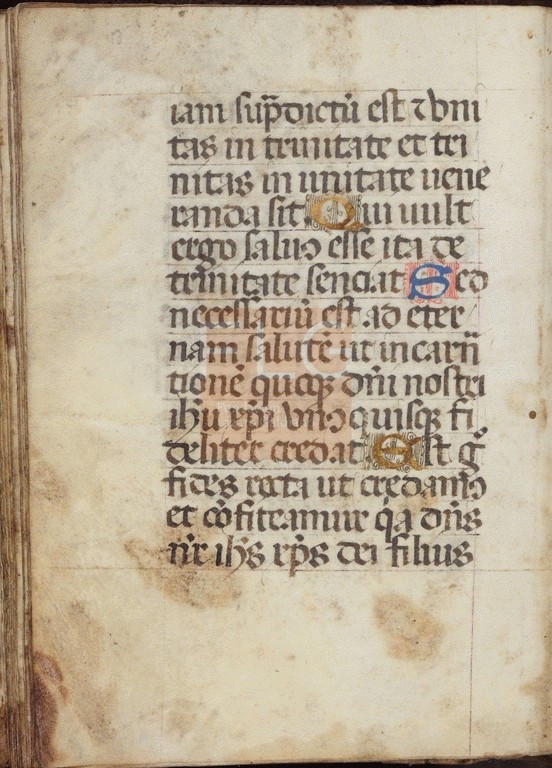 iam sup̄dictū est ⁊ vni
tas in trinitate et tri
nitas in unitate uene
randa sit Qui uult
ergo saluꝰ esse ita de
trinitate senciat Sed
necessariū est ad eter
nam salutē ut incarn̄
tionē quoqꝫ dn̄i nostri
ih̄u xp̄i vnꝰ quisqꝫ fi
deliter credat Est gͦ
fides recta ut credamꝰ
et cōfiteamur qͥa dn̄s
nr̄ ih̄s xp̄s dei filius